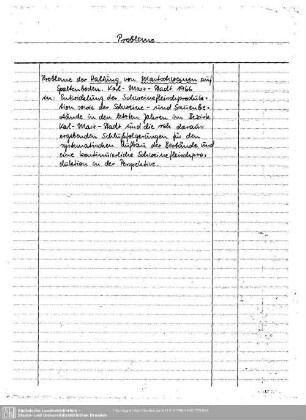 Probleme
Probleme der Haltung von Mastschweinen auf
Spaltenboden. Karl-Marx-Stadt 1966
in: Entwicklung der Schweinefleischproduk-
tion sowie der Schweine- und Sauenbe-
stände in den letzten Jahren im Bezirk
Karl-Marx-Stadt und die sich daraus
ergebenden Schlußfolgerungen für den
systematischen Aufbau der Bestände und
eine kontinuierliche Schweinefleischpro-
duktion in der Perspektive.
Sächsische Landesbibliothek -
Staats- und Universitätsbibliothek Dresden